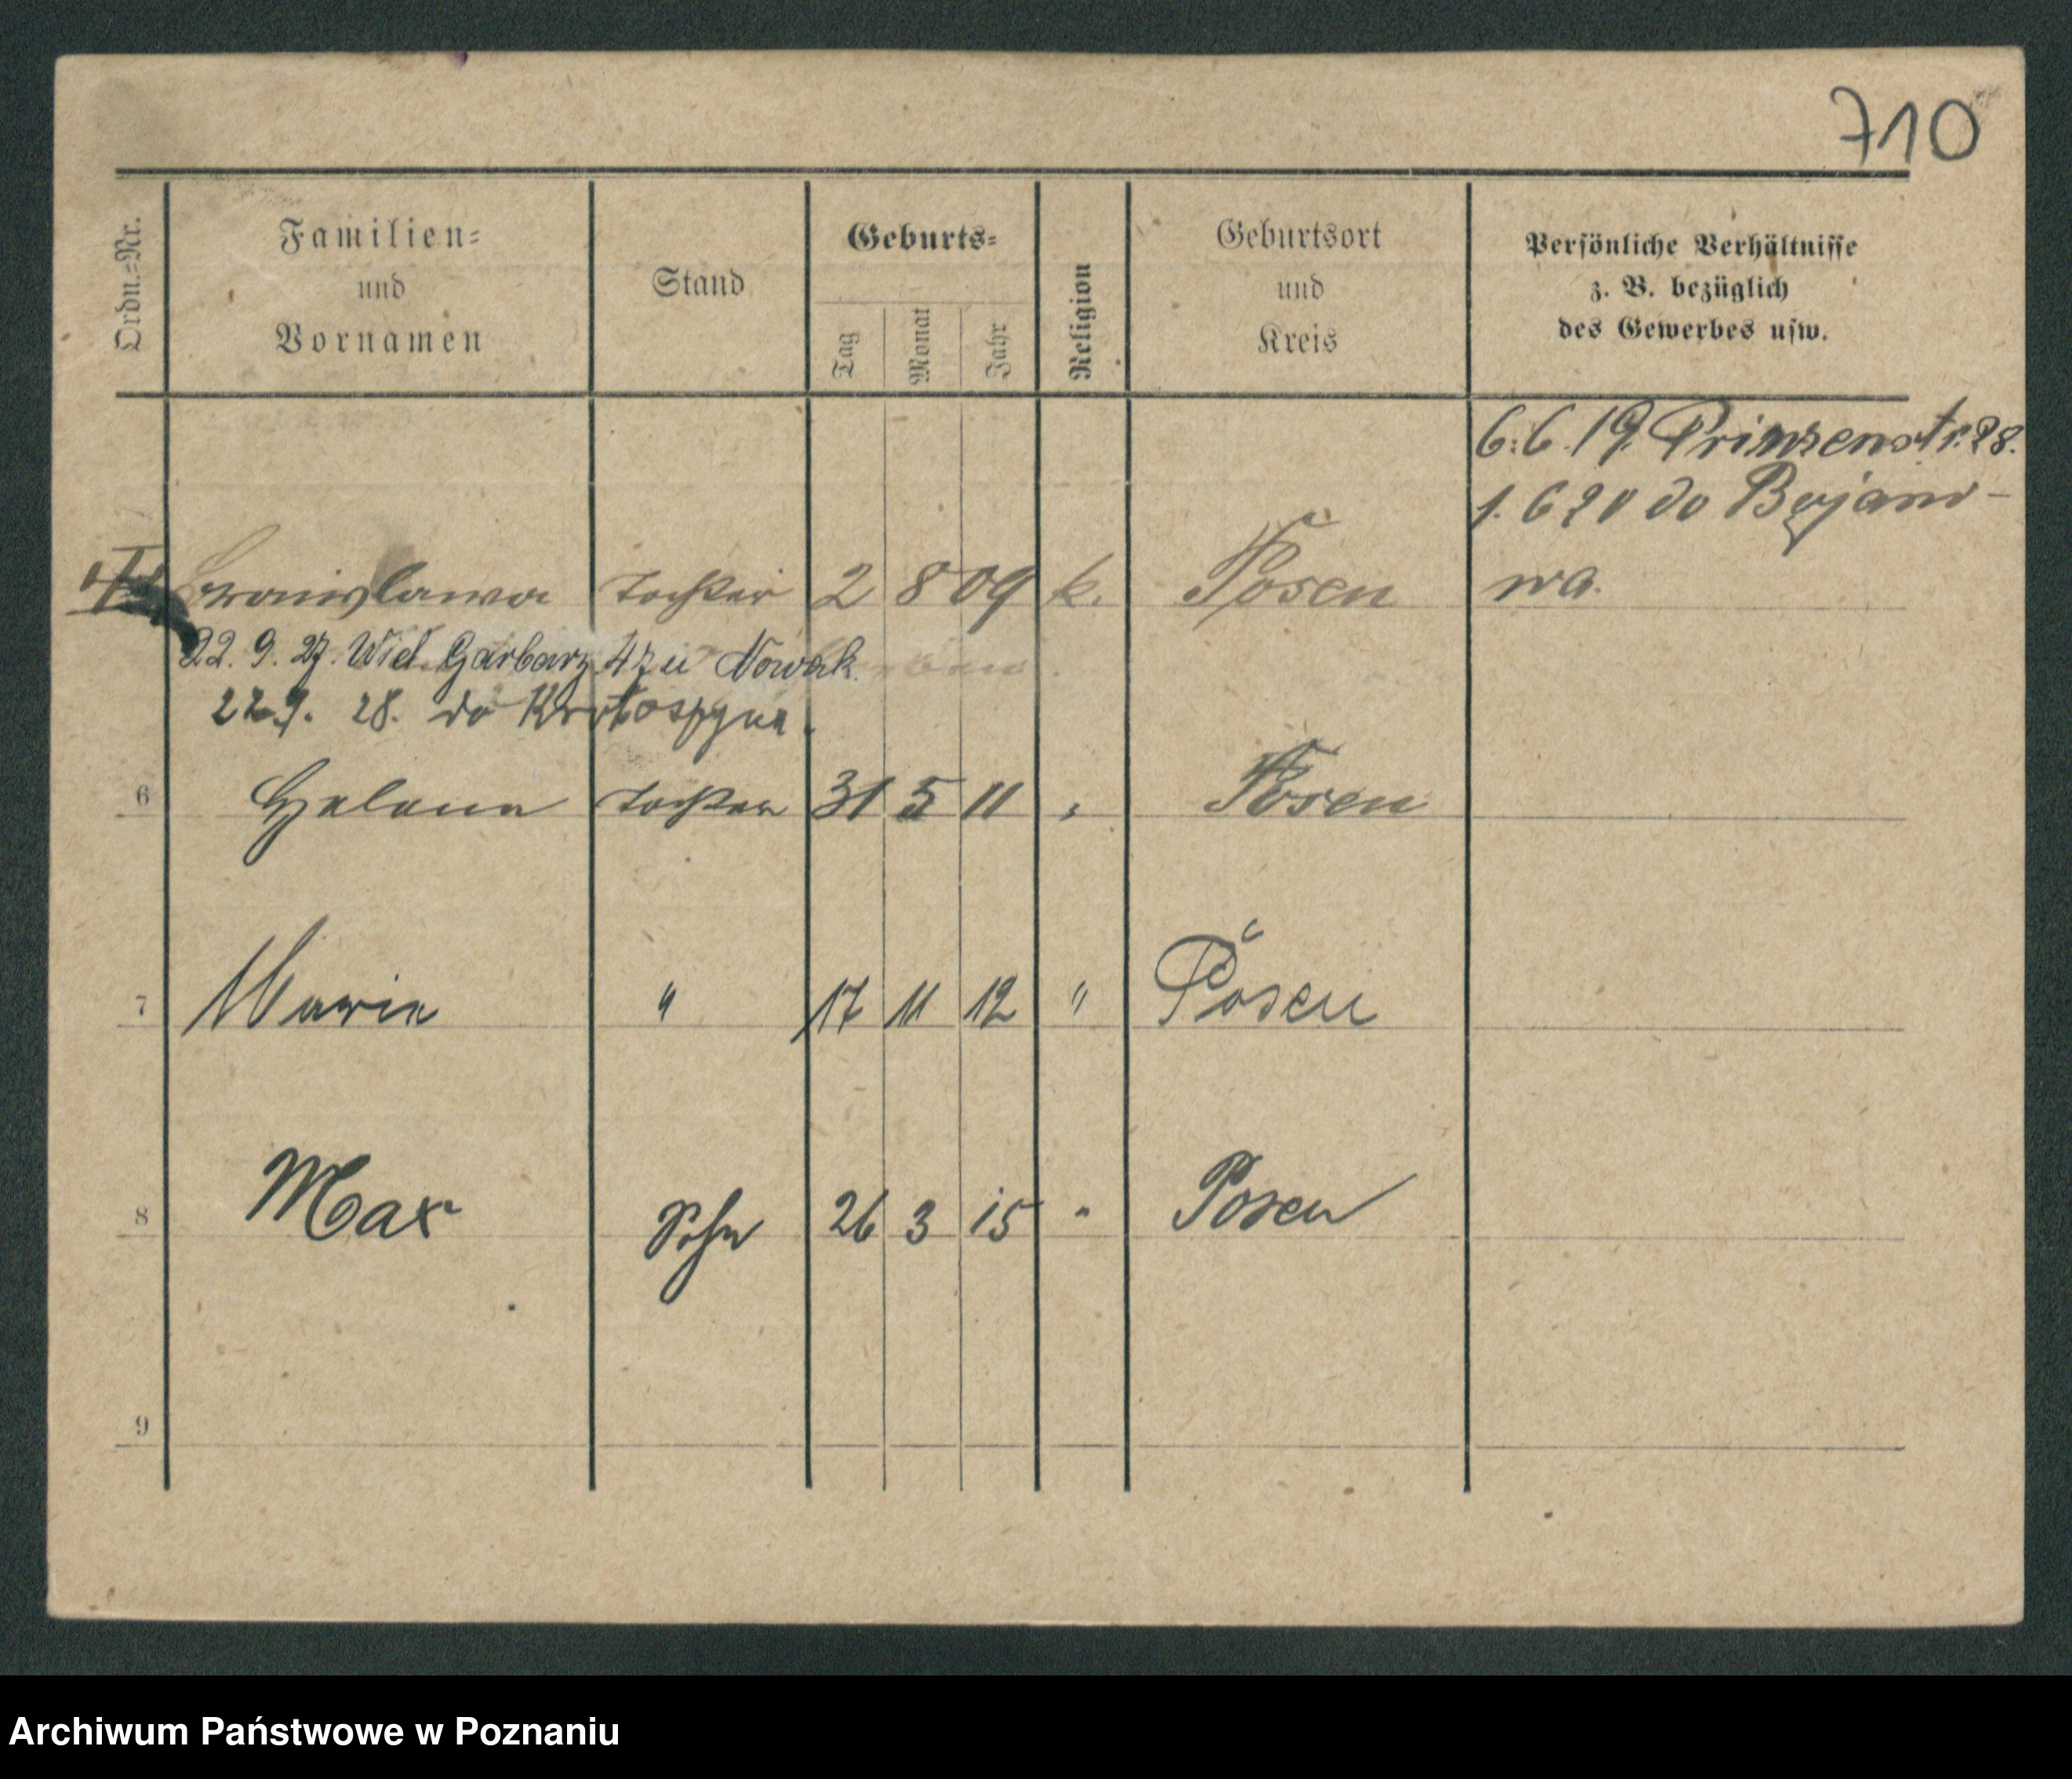 710
Ordn.=Nr.
Familien=
und
Vornamen
Stand
Geburts=
Tag
Monat
Jahr
Religion
Geburtsort
und
Kreis
Persönliche Verhältnisse
z. B. bezüglich
des Gewerbes usw.
6.6.19. Prinzenstr. 28.
1.6 20 do Bojano-
wa.
Tochter 2 8 09 k. Posen
22. 9. 27. Wiel. Garbary 47 u Nowak.
22.9. 28. do Krotoszyna.
6 Helena Tochter 31 5 11 " Posen
7 Maria " 17 11 12 " Posen
8 Max Sohn 26 3 15 " Posen
9
Archiwum Państwowe w Poznaniu